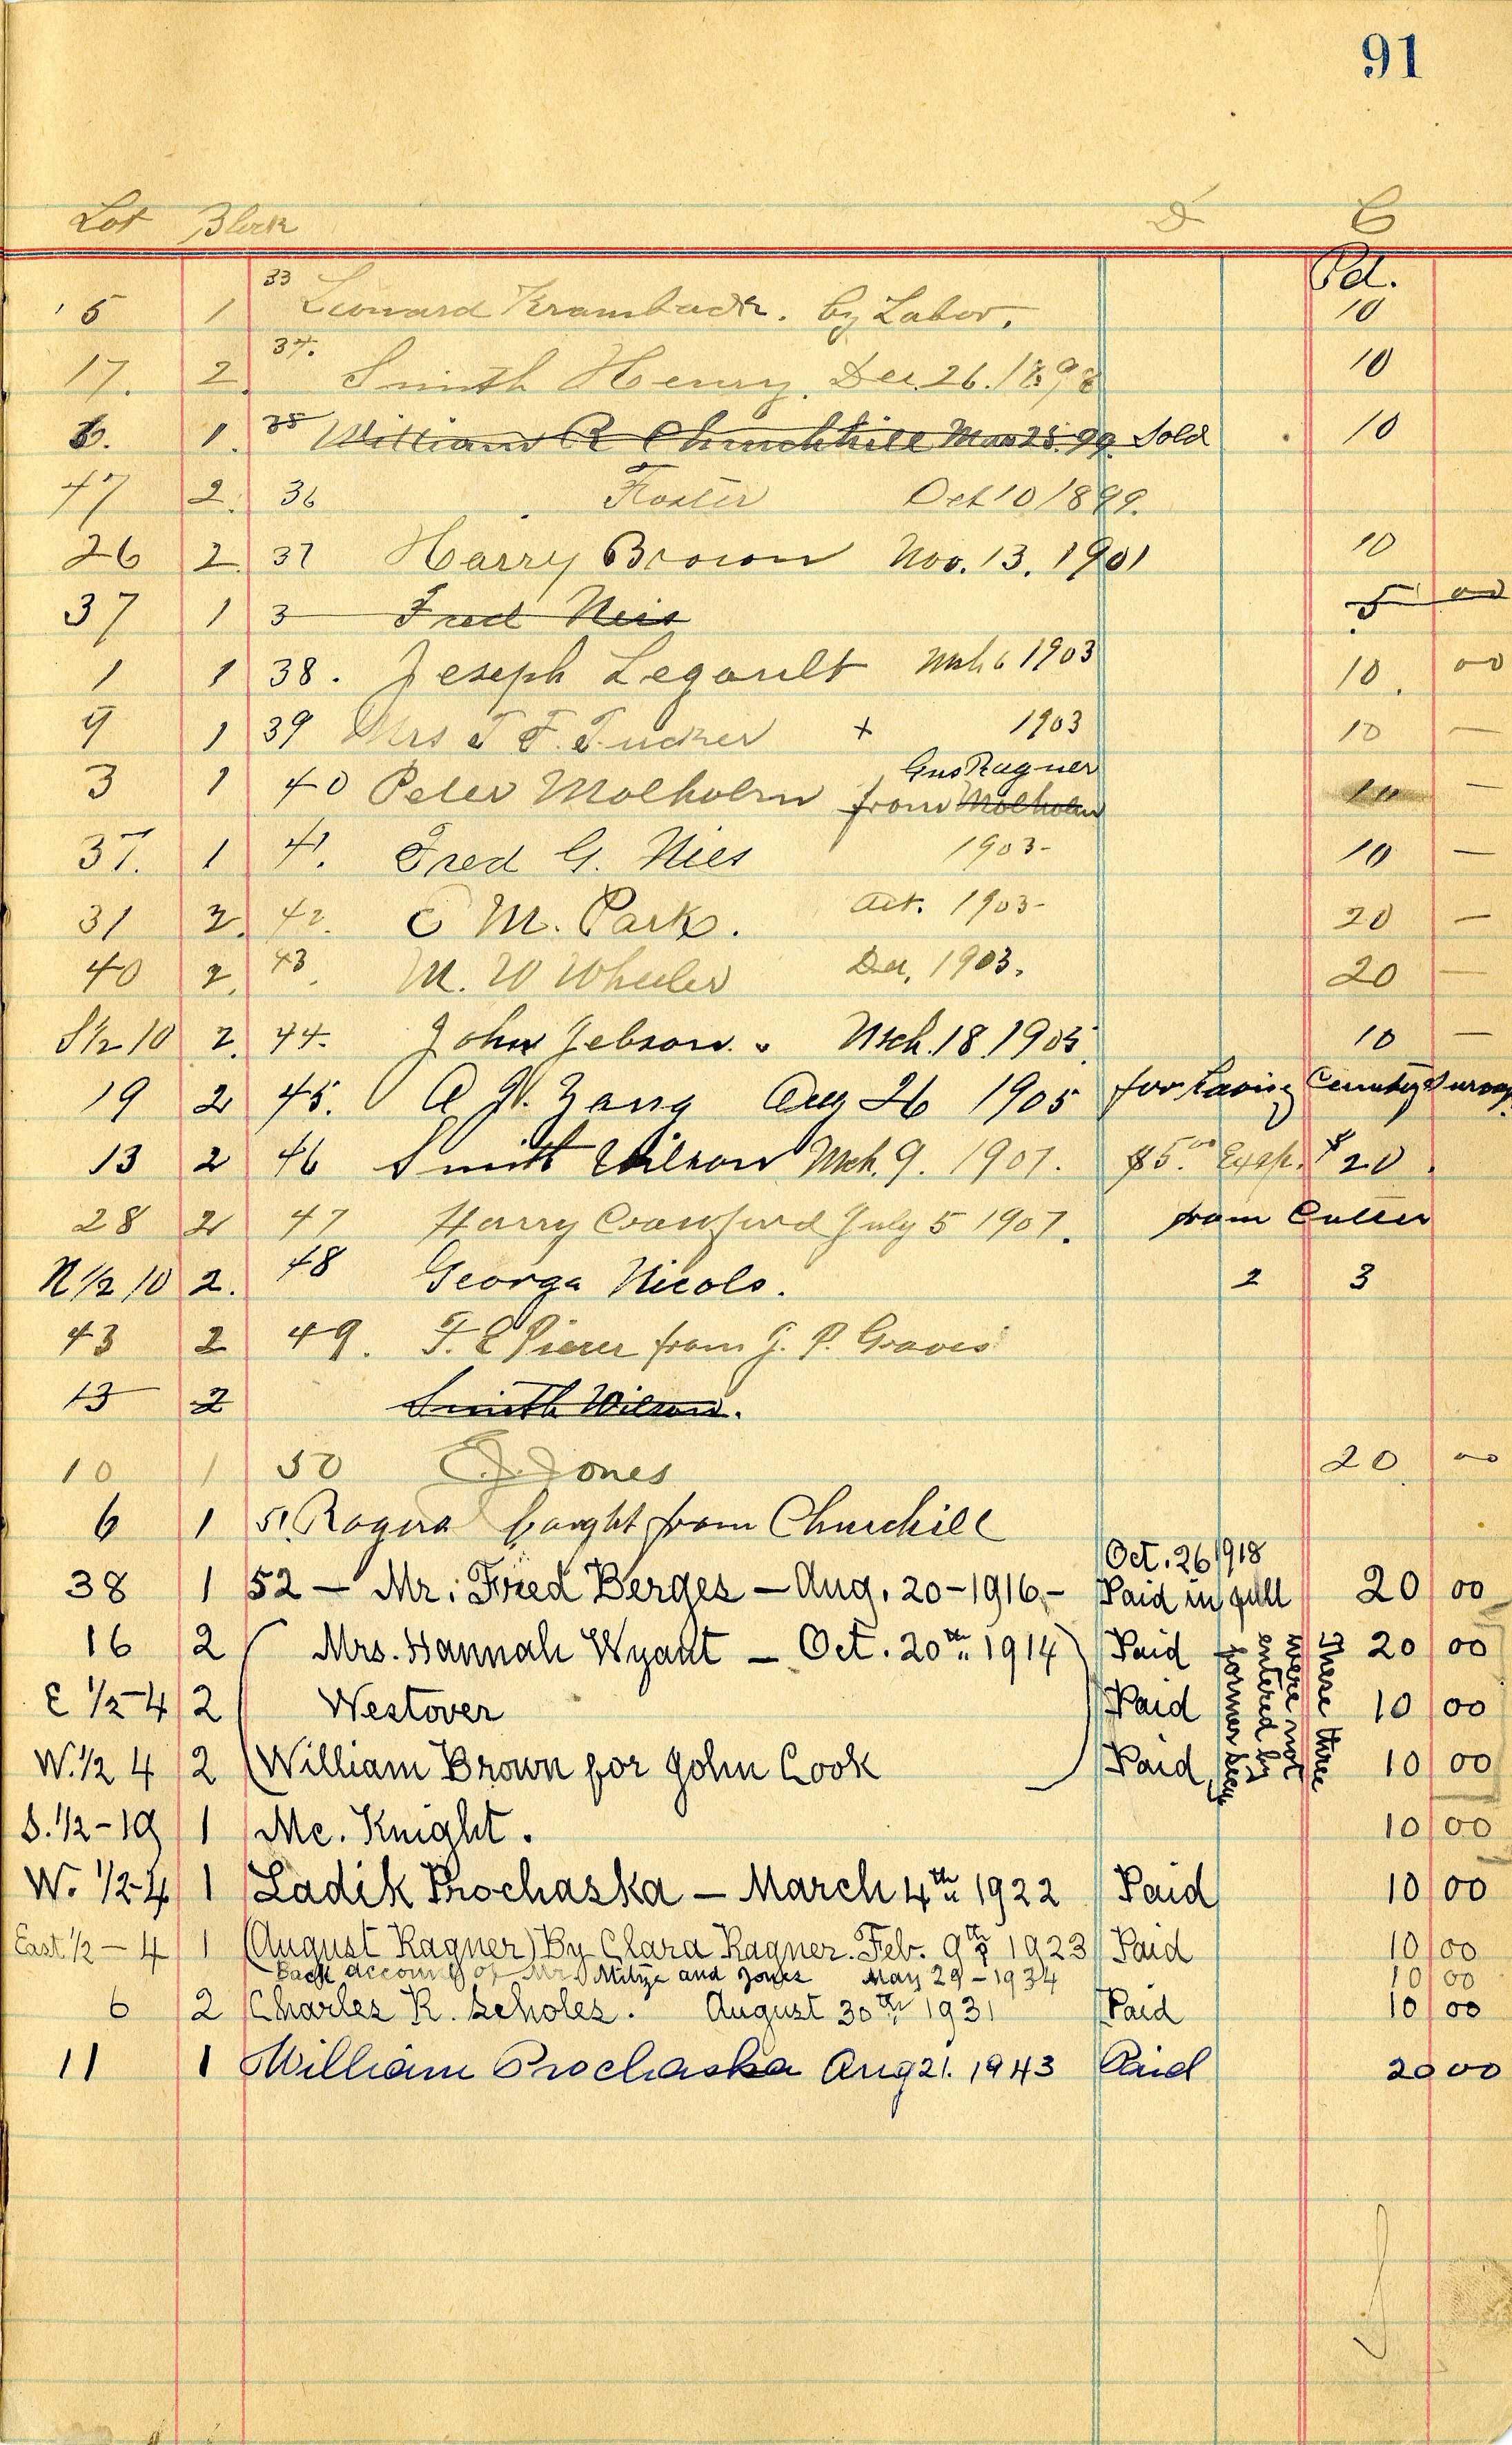 91
Lot Block D C
Pd.
5 1 33 Leonard Krambuck. by Labor. 10
17. 2. 34. Smith Henry. Dec. 26. 1898 10
6. 1. 35 William R Churchhill Mar 25. 99 Sold 10
47 2. 36 Foster Oct 10 1899.
26 2. 37 Harry Brown Nov. 13. 1901 10
37 1 3 Fred Neis 5 00
1 1 38. Joseph Legault Mch 6 1903 10. 00
9 1 39 Mrs T F. Tucker + 1903 10 —
Gus Ragner
3 1 40 Peter Molholm from Molholm 10 —
37. 1 41. Fred G. Nies 1903- 10 —
31 2. 42. C M. Park. Oct. 1903- 20 —
40 2. 43. M. W Wheeler Dec, 1903. 20 —
S 1/2 10 2. 44. John Jebson. Mch. 18. 1905. 10 —
19 2 45. Aug 26 1905 for having Cemetery Survey
13 2 46 Smith Wilson Mch. 9. 1907. $5.00 Exp. $20.
28 2 47 Harry Crawford July 5 1907. from Cutter
N 1/2 10 2. 48 George Nicols. 2 3
43 2 49. F. E Pierer from J. P. Graves
13 2 Smith Wilson.
10 1 50 E. J. Jones 20 00
6 1 51 Rogers bought from Churchill
Oct. 26 1918
38 1 52 — Mr. Fred Berges — Aug. 20-1916— Paid in full 20 00
16 2 ( Mrs. Hannah Wyant — Oct. 20th 1914 ) Paid 20 00
E 1/2-4 2 Westover Paid 10 00
W. 1/2 4 2 (William Brown for John Cook ) Paid 10 00
These three
were not
entered by
former Secy.
S. 1/2-19 1 Mc. Knight. 10 00
W. 1/2-4 1 Ladik Prochaska — March 4th 1922 Paid 10 00
East 1/2 - 4 1 (August Ragner) By Clara Ragner. Feb. 9th 1923 Paid 10 00
Back account of Mr. and Jones May 29-1934 10 00
6 2 Charles R. Scholes. August 30th 1931 Paid 10 00
11 1 William Prochaska Aug 21. 1943 Paid 20 00